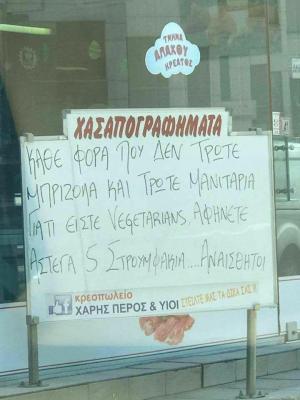 ΤΜΗΜΑ
ΑΠΑΧΟΥ
ΚΡΕΑΤΟΣ
ΧΑΣΑΠΟΓΡΑΦΗΜΑΤΑ
ΚΑΘΕ ΦΟΡΑ ΠΟΥ ΔΕΝ ΤΡΩΤΕ
ΜΠΡΙΖΟΛΑ ΚΑΙ ΤΡΩΤΕ ΜΑΝΙΤΑΡΙΑ
ΓΙΑΤΙ ΕΙΣΤΕ VEGETARIANS, ΑΦΗΝΕΤΕ
ΑΣΤΕΓΑ 5 ΣΤΡΟΥΜΦΑΚΙΑ.... ΑΝΑΙΣΘΗΤΟΙ
f κρεοπωλείο
ΧΑΡΗΣ ΠΕΡΟΣ & ΥΙΟΙ ΣΤΕΙΛΤΕ ΜΑΣ ΤΑ ΔΙΚΑ ΣΑΣ !!!